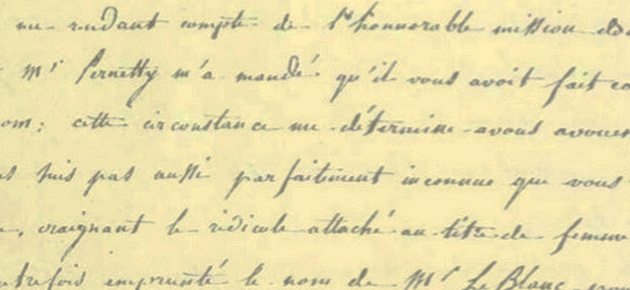 me rendant compte de l'honnorable mission do
Mr Pernetty m'a mandé qu'il vous avoit fait co
om: cette circonstance me détermine avous avouer
s suis pas aussi parfaitement inconnue que vous
, craignant le ridicule attaché au titre de femme
trefois emprunté le nom de Mr LeBlanc